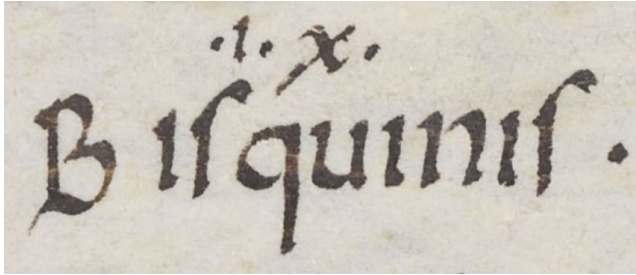 .i. x.
Biſquiniſ.